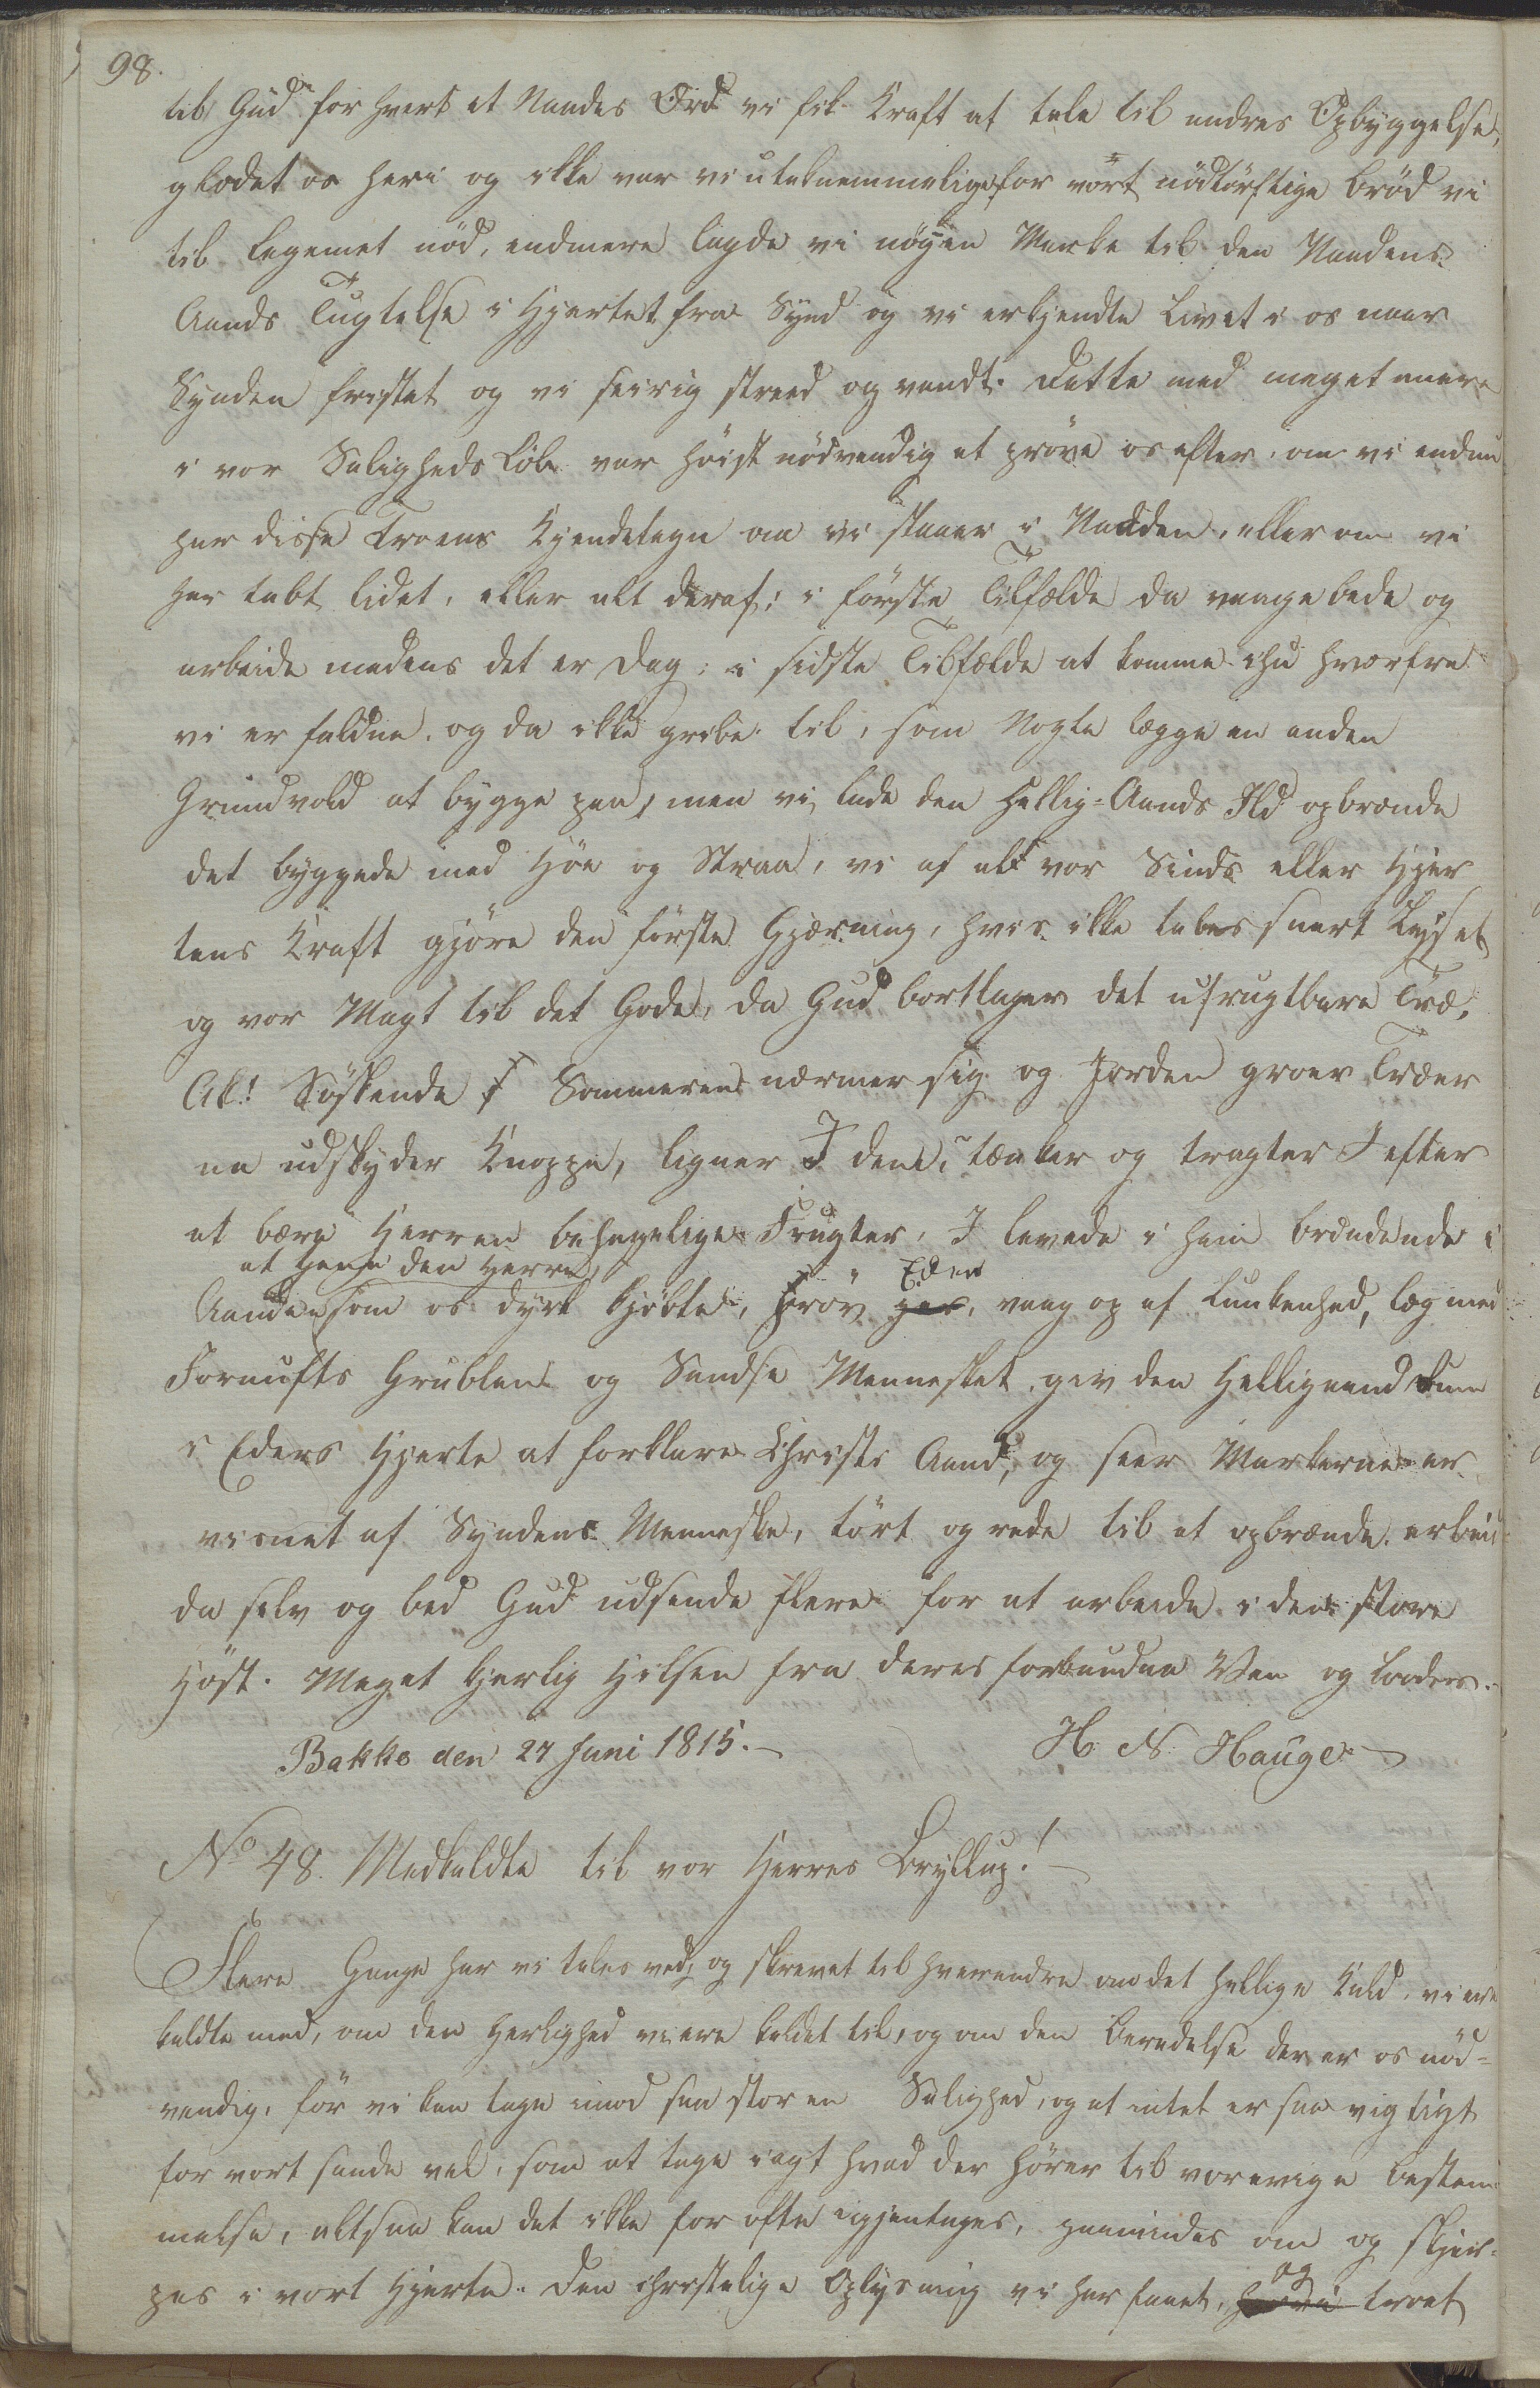 98.
til Gud for hvert et Naades Ord vi fik Kraft at tale til andres Opbyggelse,
glædet os heri og ikke var vi utaknemmelige for vort nødtørftige Brød vi
til Legemet nød, endmere lagde vi nøyen Mærke til den Naadens
Aands Tugtelse i Hjertet fra Synd og vi erkjendte Livet i os naar
Synden fristet og vi seirig streed og vandt. Dette med meget mere
i vor Saligheds Løb var høist nødvendig at prøve os efter, om vi endnu
har disse Troens Kjendetegn om vi staaer i Naaden, eller om vi
har tabt lidet, eller alt deraf; i første Tilfælde da vaage bede og
arbeide medens det er Dag; i sidste Tilfælde at komme ihu hvorfra
vi er faldne, og da ikke gribe til, som Nogle lægge en anden
Grundvold at bygge paa, men vi lade den Hellig-Aands Ild opbrænde
det byggede med Høe og Straa, vi af alt vor Sinds eller Hjer
tens Kraft gjøre den første Gjærning, hvis ikke tabes snart Lyset
og vor Magt til det Gode, da Gud borttager det ufrugtbare Træ,
Ak! Søskende I Sommeren nærmer sig og Jorden groer Træer
ne udskyder Knoppe, ligner I dem, tænker og tragter I efter
at bære Herren behagelige Frugter, I levede i ham brændende i
at tjene den Herre,
Aanden som os dyrt kjøbte, Prøv Eder, vaag op af Lunkenhed, læg ned
Fornufts Grublen og Sandse Mennesket, giv den Helligaand Rum
i Eders Hjerte at forklare Christi Aand, og seer Markerne er
visnet af Syndens Menneske, tørt og rede til at opbrænde. arbeid
da selv og bed Gud udsende flere for at arbeide i den store
Høst. Meget kjerlig Hilsen fra deres forbundne Ven og Broder.
Bakke den 27 Juni 1815.— H. N. Hauge.—
No 48. Medkaldte til vor Herres Bryllup!—
Flere Gange har vi tales ved, og skrevet til hverandre om det hellige Kald, vi ere
kaldte med, om den Herlighed vi ere kaldet til, og om den Beredelse der er os nød=
vendig, før vi kan tage imod saa stor en Salighed, og at intet er saa vigtigt
for vort sande vel, som at tage iagt hvad der hører til vor evige Bestem
melse, altsaa kan det ikke for ofte igjentages, paamindes om og skjær=
pes i vort Hjerte. Den christelige Oplysning vi har faaet, og troet